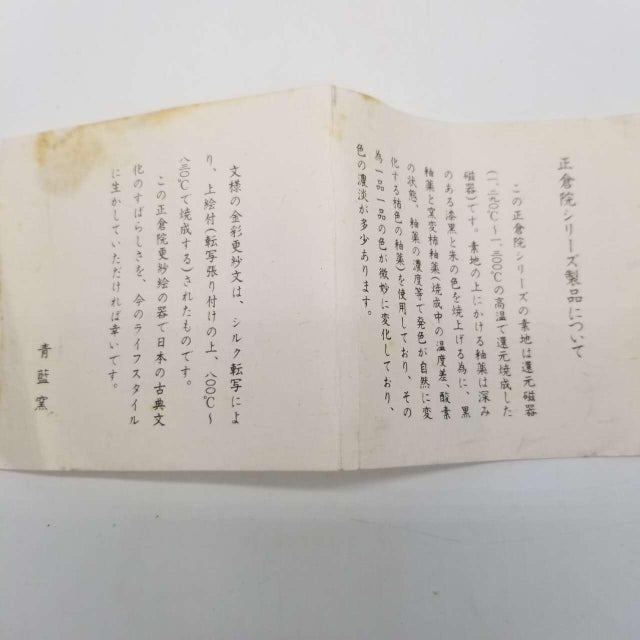 正倉院シリーズ製品について
この正倉院シリーズの素地は還元磁器
(一、二九〇℃〜一、三〇〇℃の高温で還元焼成した
磁器)です。素地の上にかける釉薬は深み
のある漆黒と朱の色を焼上げる為に、黒
釉薬と窯変柿釉薬(焼成中の温度差、酸素
の状態、釉薬の濃度等で発色が自然に変
化する柿色の釉薬)を使用しており、その
為一品一品の色が微妙に変化しており、
色の濃淡が多少あります。
文様の金彩更紗文は、シルク転写によ
り、上絵付(転写張り付けの上、八〇〇℃〜
八三〇℃で焼成する)されたものです。
この正倉院更紗絵の器で日本の古典文
化のすばらしさを、今のライフスタイル
に生かしていただければ幸いです。
青藍窯